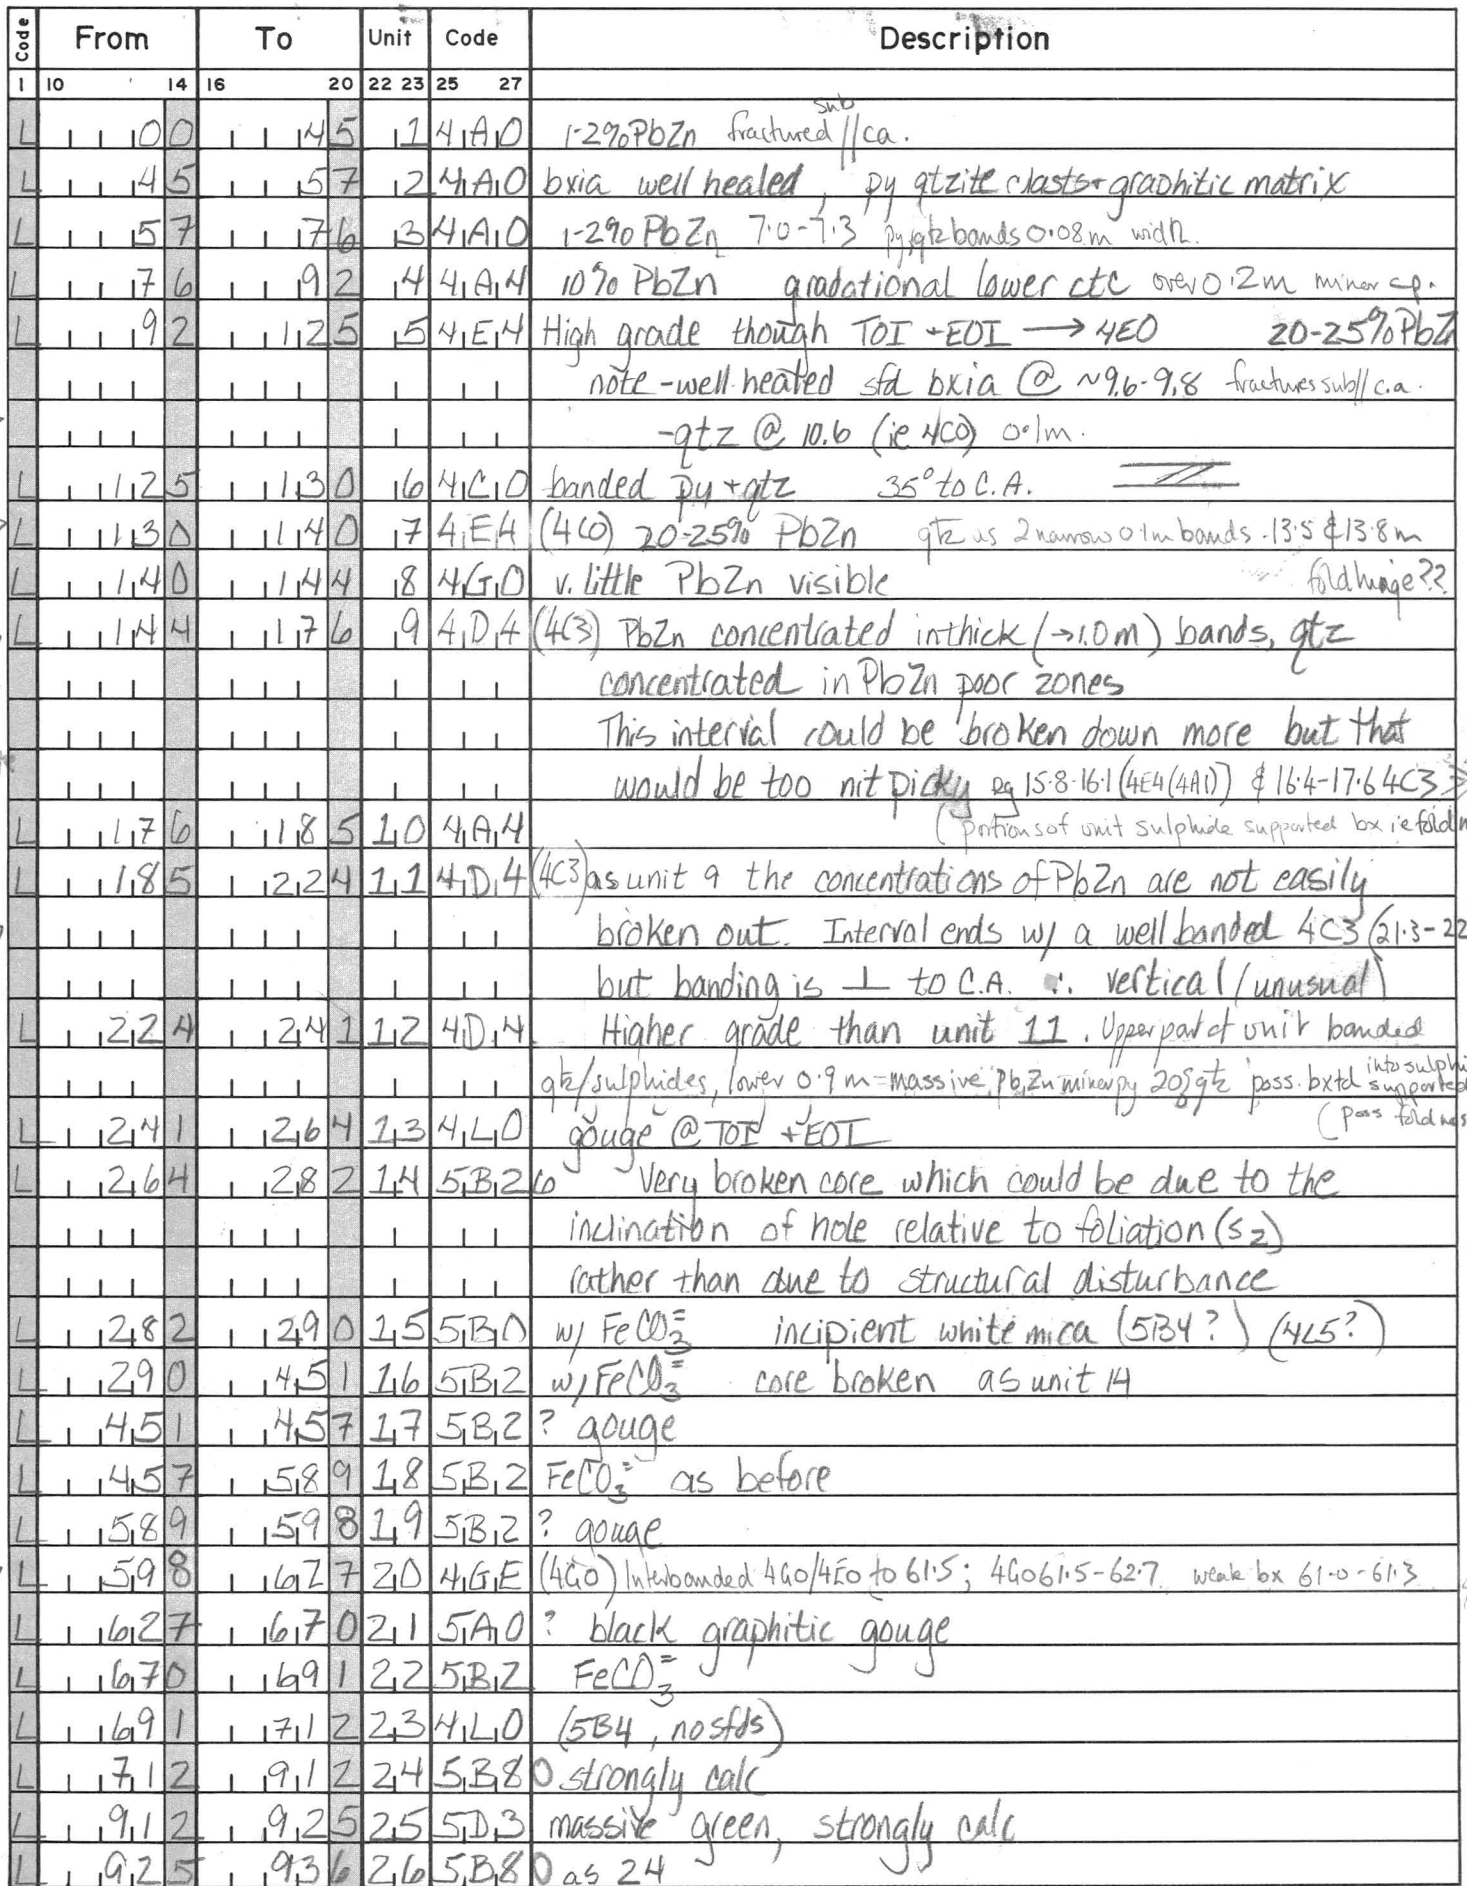 Code From To Unit Code Description
1 10 14 16 20 22 23 25 27
L 00 45 1 4A0 1-2% PbZn fractured sub // ca.
L 45 57 2 4A0 bxia well healed, py qtzite clasts + graphitic matrix
L 57 76 3 4A0 1-2% PbZn 7.0-7.3 py, qtz bands 0.08m width.
L 76 92 4 4A4 10% PbZn gradational lower ctc over 0.2m minor cp.
L 92 125 5 4E4 High grade though TOI + EOI → 4E0 20-25% PbZn
note - well healed sfd bxia @ ~9.6-9.8 fractures sub// c.a.
- qtz @ 10.6 (ie 4C0) 0.1m.
L 125 130 6 4C0 banded py + qtz 35° to C.A.
L 130 140 7 4E4 (4C0) 20-25% PbZn qtz as 2 narrow 0.1m bands. 13.5 & 13.8m
L 140 144 8 4G0 v. little PbZn visible fold hinge??
L 144 176 9 4D4 (4C3) PbZn concentrated in thick (→1.0m) bands, qtz
concentrated in PbZn poor zones
This interval could be broken down more but that
would be too nit picky eg 15.8-16.1 (4E4(4A1)) & 16.4-17.6 4C3
L 176 185 10 4A4 (portions of unit sulphide supported bx ie fold n
L 185 224 11 4D4 (4C3) as unit 9 the concentrations of PbZn are not easily
broken out. Interval ends w/ a well banded 4C3 (21.3-22
but banding is ⊥ to C.A. ∴ vertical (unusual)
L 224 241 12 4D4 Higher grade than unit 11. Upper part of unit banded
qtz/sulphides, lower 0.9m = massive, Pb,Zn minor py qtz poss. bxtd into sulphi supported
L 241 264 13 4L0 gouge @ TOI + EOI (poss fold nos
L 264 282 14 5B26 Very broken core which could be due to the
inclination of hole relative to foliation (S2)
rather than due to structural disturbance
L 282 290 15 5B0 w/ FeCO3= incipient white mica (5B4?) (4L5?)
L 290 451 16 5B2 w/ FeCO3= core broken as unit 14
L 451 457 17 5B2 ? gouge
L 457 589 18 5B2 FeCO3= as before
L 589 598 19 5B2 ? gouge
L 598 627 20 4GE (4G0) Interbanded 4G0/4E0 to 61.5; 4G0 61.5-62.7 weak bx 61.0-61.3
L 627 670 21 5A0 ? black graphitic gouge
L 670 691 22 5B2 FeCO3=
L 691 712 23 4L0 (5B4, no sfds)
L 712 912 24 5B80 strongly calc
L 912 925 25 5D3 massive green, strongly calc
L 925 936 26 5B80 as 24